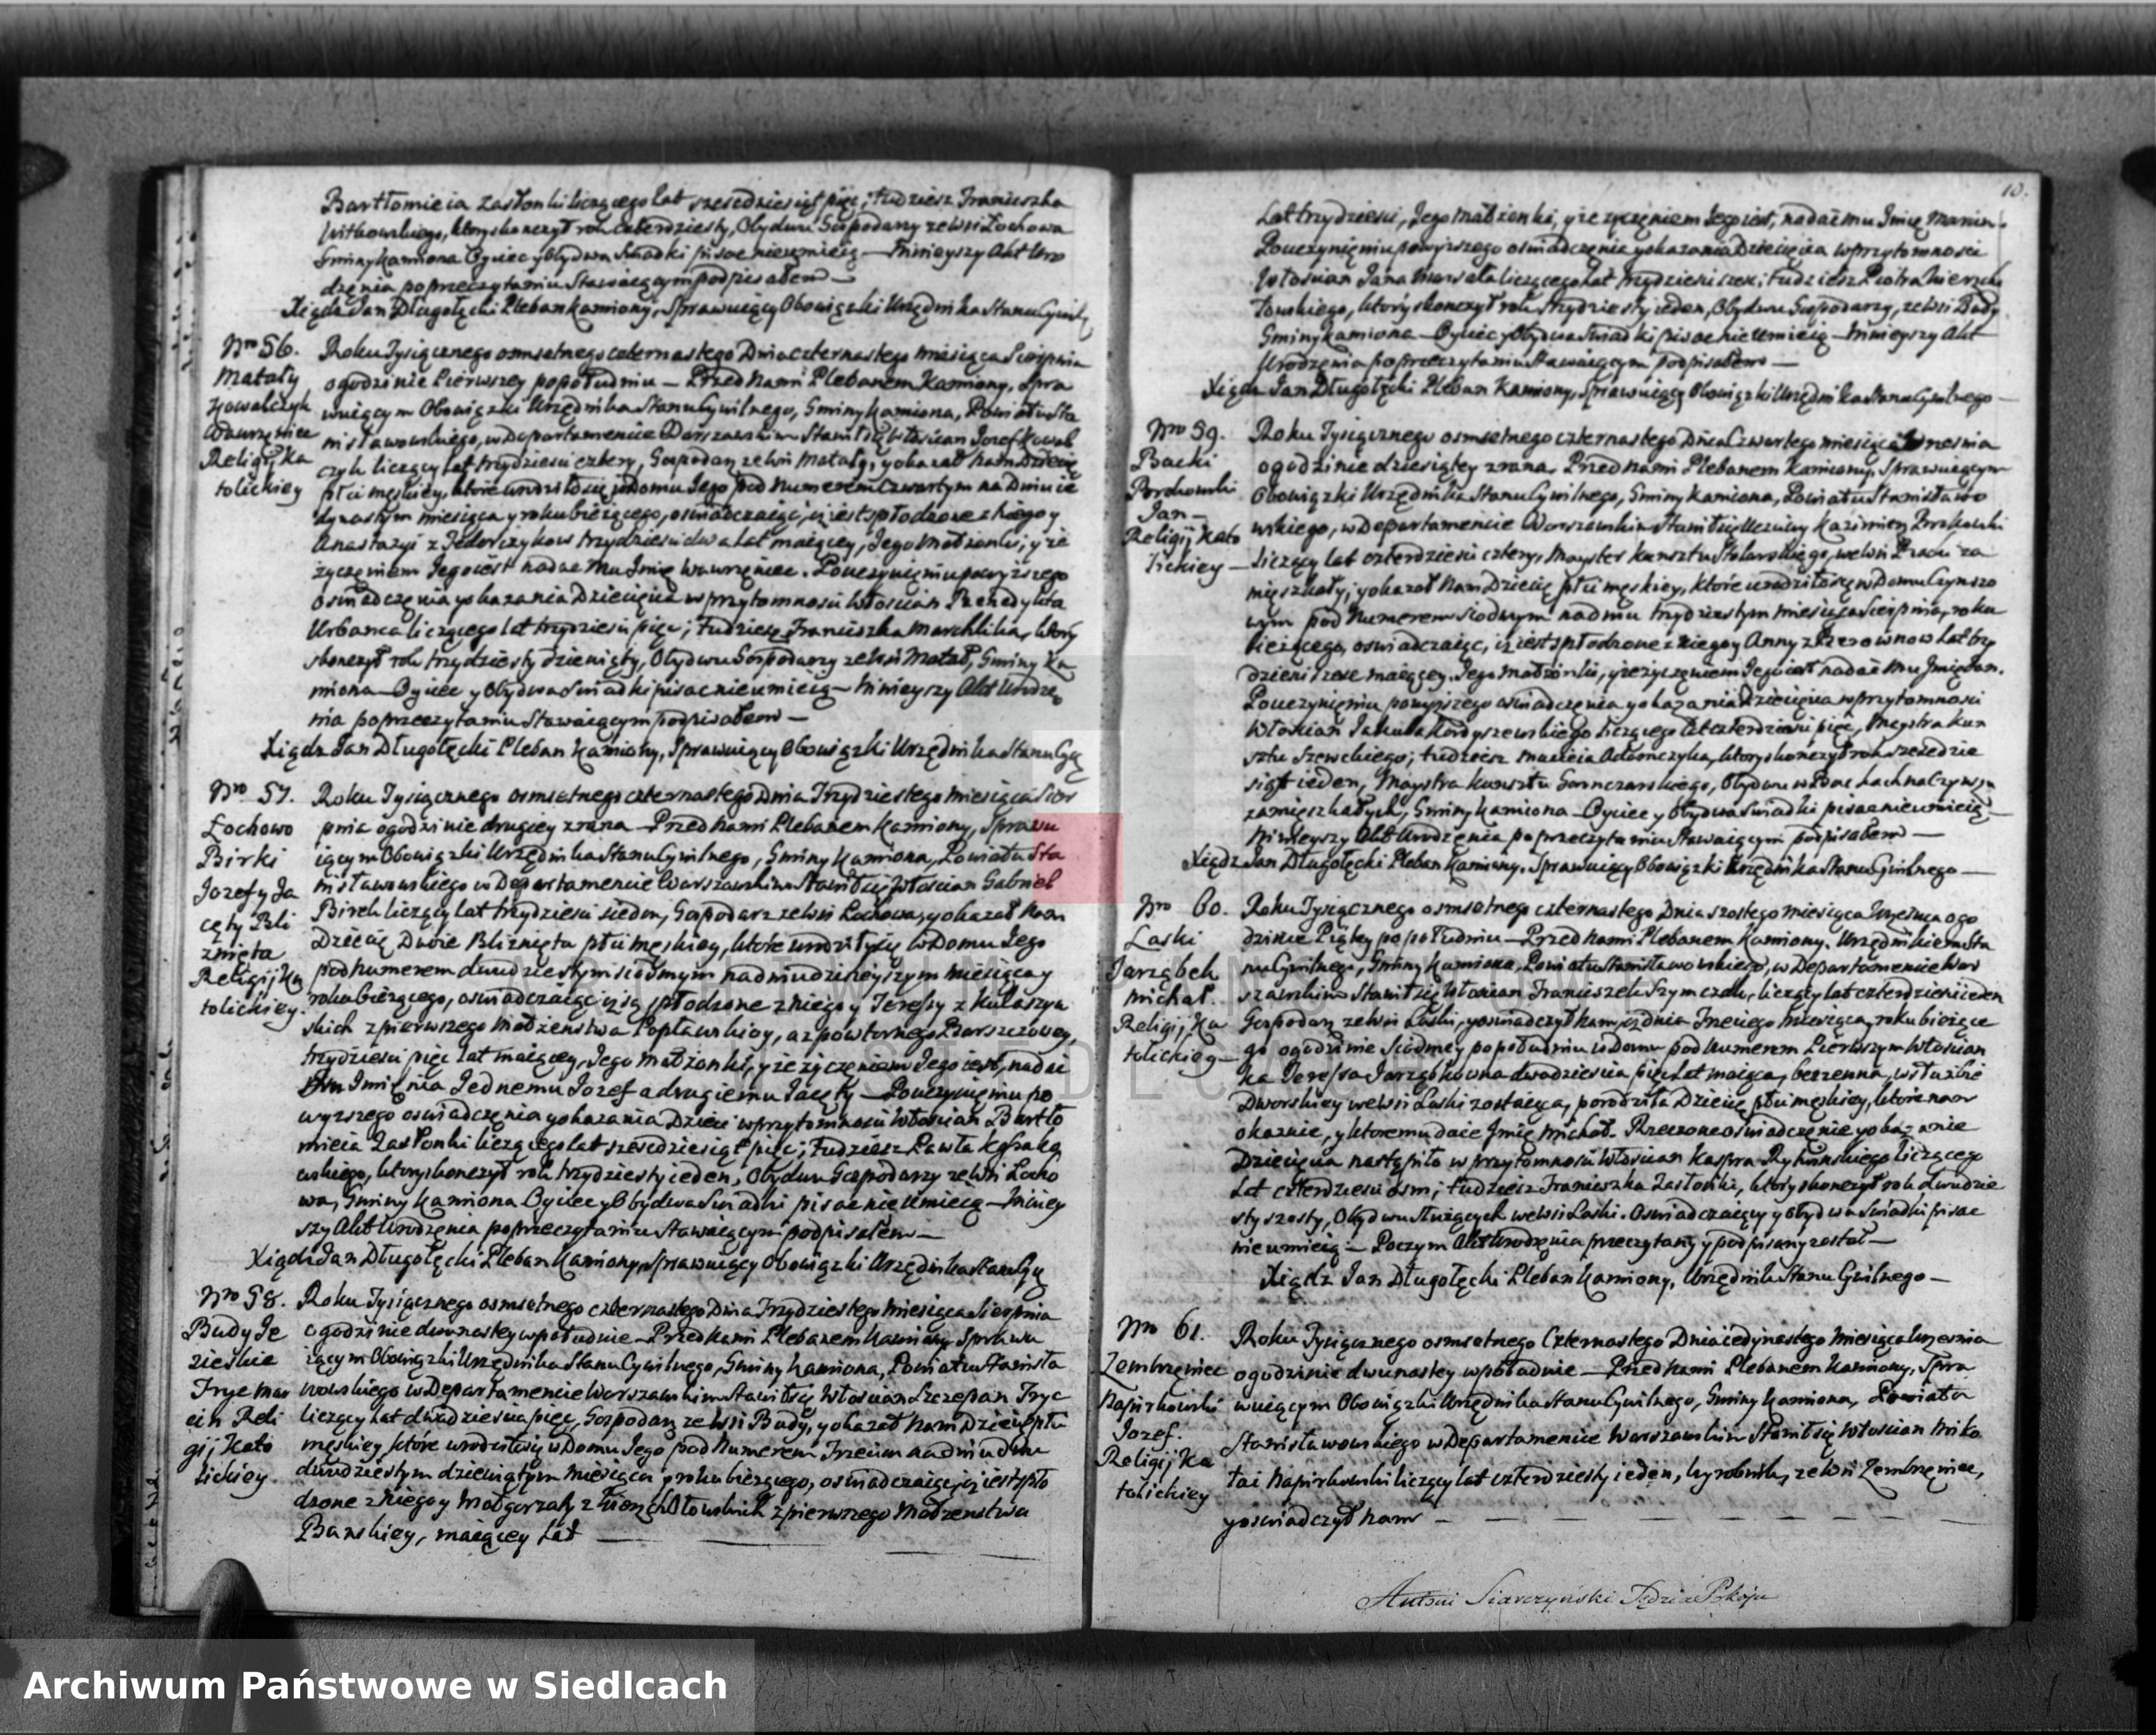 Bartłomieia Zasłonki liczącego lat szescdziesiąt pięc; Tudziesz Franciszka
Witkowskiego, ktory skonczył rok czterdziesty, Obydwu Gospodarzy zewsi Łochowa
Gminy Kamiona Oyciec y obydwa Swiadki pisac nieumieią — Ninieyszy Akt Uro
dzęnia poprzeczytaniu Stawaiącym podpisałem —
Xiądz Jan Długołęcki Pleban Kamiony, Sprawuiący Obowiązki Urzędnika Stanu Cywil
Nro 56.
Matały
Kowalczyk
Wawrzęniec
Religij Ka
tolickiey
Roku Tysiącznego osmsetnego czternastego Dnia czternastego miesiąca Sierpnia
ogodzinie Pierwszey popołudniu — Przed Nami Plebanem Kamiony, Spra
wuiącym Obowiązki Urzędnika Stanu Cywilnego, Gminy Kamiona, Powiatu Sta
nisławowskiego, w Departamencie Warszawskim Stawił się Włoscian Jozef Kowal
czyk liczący lat trzydziesci cztery, Gospodarz zewsi Matały, y okazał Nam Dziecię
płci męskiey, ktore urodziło się w domu Jego pod Numerem Czwartym na Dniu ie
dynastym miesiąca y roku bieżącego, oswiadczaiąc, iż iest spłodzone z Niego y
Anastazyi z Fedorczykow trzydziesci dwa Lat maiącey, Jego Małzonki; y że
życzęniem Jego iest nadac Mu Jmię Wawrzęniec. Pouczynięniu powyższego
oswiadczęnia y okazania Dziecięcia w przytomnosci Włoscian Benedykta
Urbanca liczącego lat trzydziesci pięc; Tudziesz Franciszka Marchlika, ktory
skonczył rok trzydziesty dziewiąty, Obydwu Gospodarzy zewsi Matał, Gminy Ka
miona — Oyciec y Obydwa Swiadki pisac nieumieią — Ninieyszy Akt Urodzę
nia poprzeczytaniu Stawaiącym podpisałem —
Xiądz Jan Długołęcki Pleban Kamiony, Sprawuiący Obowiązki Urzędnika Stanu Cy
Nro 57.
Łochowo
Birki
Jozef y Ja
cęty Bli
znięta
Religij Ka
tolickiey.
Roku Tysiącznego osmsetnego czternastego Dnia Trzydziestego miesiąca Sier
pnia ogodzinie drugiey zrana — Przed Nami Plebanem Kamiony, Sprawu
iącym Obowiązki Urzędnika Stanu Cywilnego, Gminy Kamiona, Powiatu Sta
nisławowskiego w Departamencie Warszawskim Stawił się Włoscian Gabriel
Birek liczący lat trzydziesci siedm, Gospodarz zewsi Łochowa, y okazał Nam
Dziecię Dwoie Bliznięta płci męskiey, ktore urodziły się w Domu Jego
pod numerem dwudziestym siodmym na dniu dzisieyszym miesiąca y
roku bieżącego, oswiadczaiąc iż są spłodzone z niego y Teressy z Kulaszyn
skich z pierwszego Małżenstwa Popławskiey, a z powtornego Barszczowey,
trzydziesci pięc Lat maiącey, Jego Małżonki, y że życzęniem Jego iest, nadac
Jmięnia Jednemu Jozef a drugiemu Jacęty — Pouczynięniu po
wyzszego oswiadczęnia y okazania Dzieci w przytomnosci Włoscian Bartło
mieia Zasłonki liczącego lat szescdziesiąt pięc; Tudziesz Pawła
wskiego, ktory skonczył rok trzydziesty ieden, Obydwu Gospodarzy zewsi Łocho
wa, Gminy Kamiona Oyciec y Obydwa Swiadki pisac nieumieią — Niniey
szy Akt Urodzęnia poprzeczytaniu Stawaiącym podpisałem —
Xiądz Jan Długołęcki Pleban Kamiony, Sprawuiący Obowiązki Urzędnika Stanu Cy
Nro 58.
Budy Je
zieskie
Fryc Mar
cin Reli
gij Kato
lickiey.
Roku Tysiącznego osmsetnego czternastego Dnia Trzydziestego Miesiąca Sierpnia
ogodzinie dwunastey wpołudnie — Przed Nami Plebanem Kamiony Sprawu
iącym Obowiązki Urzędnika Stanu Cywilnego, Gminy Kamiona, Powiatu Stanisła
wowskiego w Departamencie Warszawskim Stawił się Włoscian Szczepan Fryc
liczący Lat dwadziescia pięc, Gospodarz zewsi Budy, y okazał Nam Dziecię płci
męskiey, ktore urodziło się w Domu Jego pod Numerem Trzecim na dniu dwu
dwudziestym dziewiątym miesiąca y roku bieżącego, oswiadczaiąc, iż iest spło
dzone z Niego y Małgorzaty z z pierwszego Małzenstwa
Banskiey, maiącey Lat —
10.
Lat trzydziesci, Jego Małżonki, y że życzęniem Jego iest, nadac mu Jmię Marcin.
Pouczynięniu powyższego oswiadczęnia y okazania Dziecięcia w przytomnosci
Włoscian Jana Marszała liczącego Lat trzydziesci szesc; Tudziesz Piotra Wierzcho
łowskiego, ktory skonczył rok trzydziesty ieden, Obydwu Gospodarzy, zewsi Budy
Gminy Kamiona — Oyciec y Obydwa Swiadki pisac nieumieią — Ninieyszy Akt
Urodzęnia poprzeczytaniu Stawaiącym podpisałem —
Xiądz Jan Długołęcki Pleban Kamiony, Sprawuiący Obowiązki Urzędnika Stanu Cywilnego —
Nro 59.
Backi
Borkowski
Jan —
Religij Kato
lickiey —
Roku Tysiącznego osmsetnego czternastego Dnia Czwartego miesiąca Wrzesnia
ogodzinie dziesiątey zrana, Przed Nami Plebanem Kamiony, Sprawuiącym
Obowiązki Urzędnika Stanu Cywilnego, Gminy Kamiona, Powiatu Stanisławo
wskiego, w Departamencie Warszawskim Stawił się Uczciwy Kazimierz Borkowski
liczący lat czterdziesci cztery, Mayster kunsztu Stolarskiego, wewsi za
mięszkały; y okazał Nam Dziecię płci męskiey, ktore urodziło się w Domu Czynszo
wym pod Numerem siodmym na dniu trzydziestym miesiąca Sierpnia, roku
bieżącego, oswiadczaiąc, iż iest spłodzone z Niego y Anny z Lat trzy
dziesci szesc maiącey, Jego Małżonki, y że życzęniem Jego iest nadac Mu Jmię Jan.
Pouczynięniu powyższego oswiadczęnia y okazania Dziecięcia w przytomnosci
Włoscian Jakuba Kordyszewskiego liczącego Lat czterdziesci pięc, Maystra kun
sztu Szewckiego; tudziesz Macieia Adamczyka, ktory skonczył rok szescdzie
siąt ieden, Maystra kunsztu Garnczarskiego, Obydwu na Czynszu
zamięszkałych, Gminy Kamiona — Oyciec y obydwa Swiadki pisac nieumieią —
Ninieyszy Akt Urodzęnia poprzeczytaniu Stawaiącym podpisałem —
Xiądz Jan Długołęcki Pleban Kamiony, Sprawuiący Obowiązki Urzędnika Stanu Cywilnego —
Nro 60.
Laski
Jarząbek
Michał.
Religij Ka
tolickiey —
Roku Tysiącznego osmsetnego czternastego Dnia szostego miesiąca Wrzesnia ogo
dzinie Piątey popołudniu — Przed Nami Plebanem Kamiony, Urzędnikiem Sta
nu Cywilnego, Gminy Kamiona, Powiatu Stanisławowskiego, w Departamencie War
szawskim Stawił się Włoscian Franciszek Szymczak, liczący lat czterdziesci ieden
Gospodarz zewsi Laski, y oswiadczył Nam, iż dnia Trzeciego miesiąca, roku bieżące
go ogodzinie Siodmey popołudniu w Domu pod Numerem Pierwszym Włoscian
ka Teressa Jarząbkowna dwadziescia pięc Lat maiąca, bezzenna, w służbie
Dworskiey wewsi Laski zostaiąca, porodziła Dziecię płci męskiey, ktore nam
okazuie, y ktoremu daie Jmię Michał. Rzeczone oswiadczęnie y okazanie
Dziecięcia nastąpiło w przytomnosci Włoscian Kaspra liczącego
Lat czterdziesci osm; tudziesz Franciszka Zasłonki, ktory skonczył rok dwudzie
sty szosty, Obydwu służących wewsi Laski. Oswiadczaiący y obydwa Swiadki pisac
nieumieią — Poczym Akt Urodzęnia przeczytany y podpisany został —
Xiądz Jan Długołęcki Pleban Kamiony, Urzędnik Stanu Cywilnego —
Nro 61.
Zembrzęniec
Napirkowski
Jozef.
Religij Ka
tolickiey
Roku Tysiącznego osmsetnego Czternastego Dnia iedynastego Miesiąca Wrzesnia
ogodzinie dwunastey wpołudnie — Przed Nami Plebanem Kamiony, Spra
wuiącym Obowiązki Urzędnika Stanu Cywilnego, Gminy Kamiona, Powiatu
Stanisławowskiego w Departamencie Warszawskim Stawił się Włoscian Miko
łai Napirkowski liczący lat czterdziesty ieden, Wyrobnik, zewsi Zembrzęniec,
y oswiadczył Nam —
Antoni Siarczyński Sędzia Pokoju
Archiwum Państwowe w Siedlcach